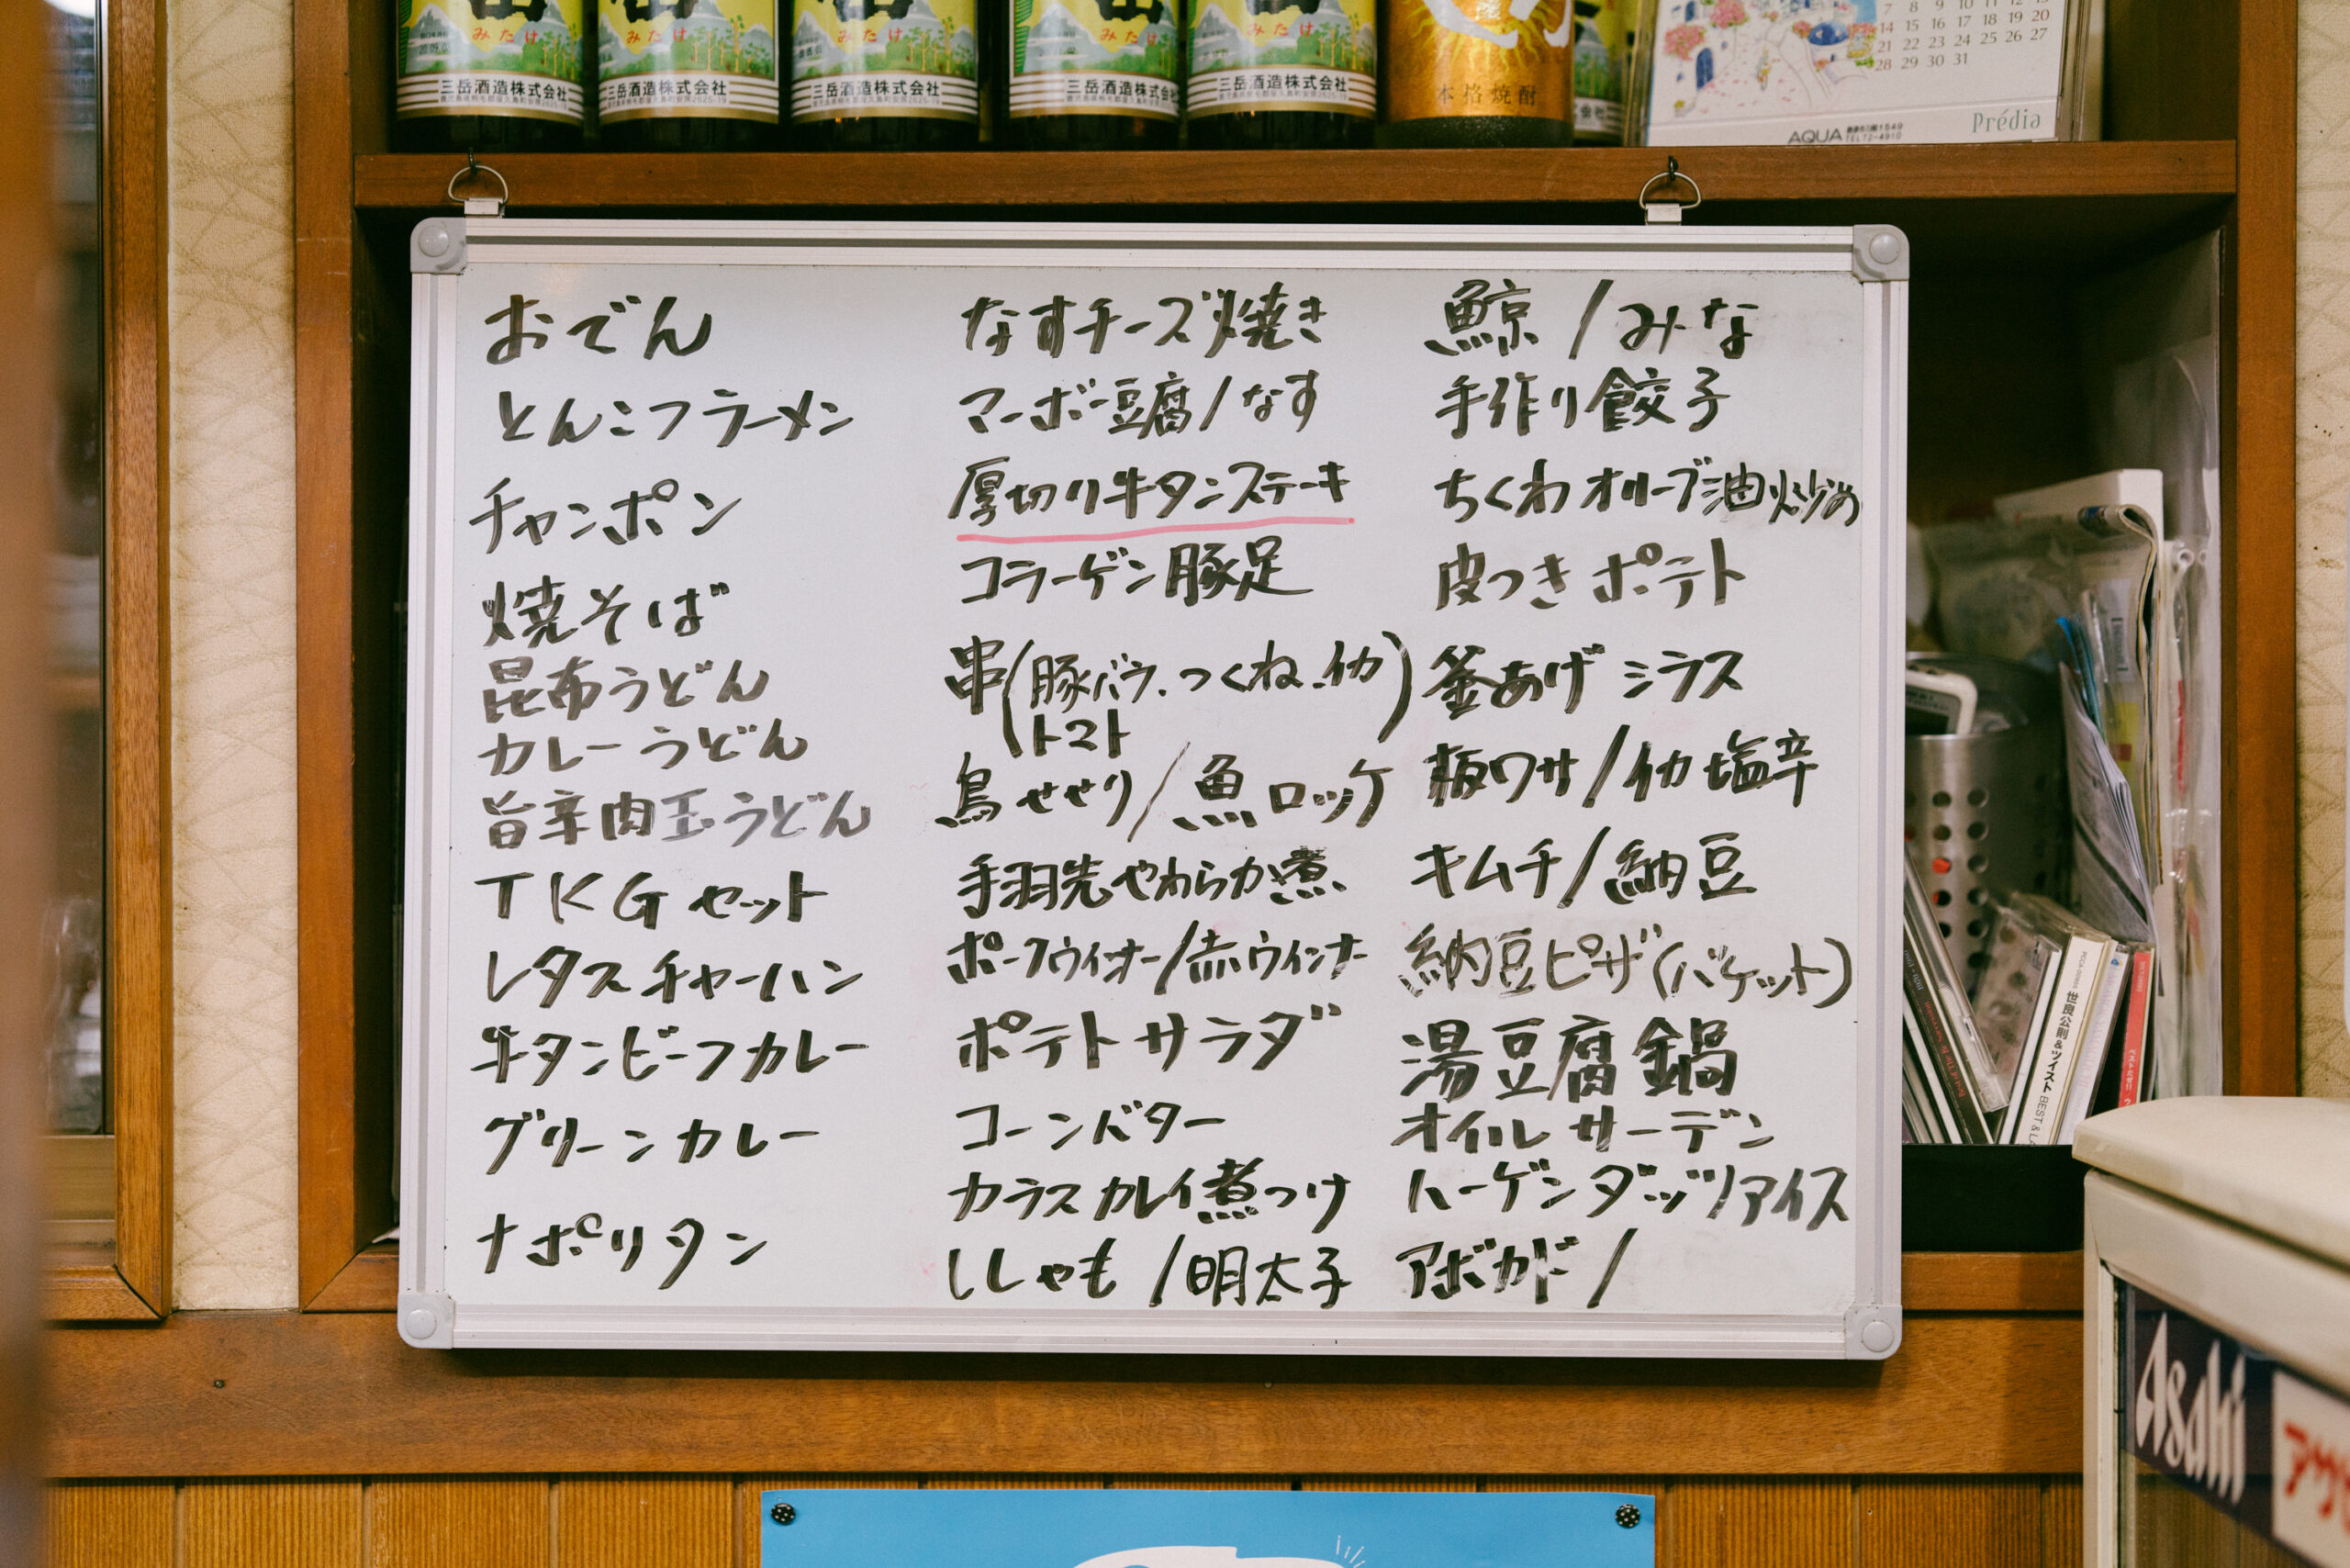 みたけ
三岳酒造株式会社
みたけ
三岳酒造株式会社
みたけ
三岳酒造株式会社
みたけ
三岳酒造株式会社
みたけ
三岳酒造株式会社
本格焼酎
7 8 9 10 11 12 13
14 15 16 17 18 19 20
21 22 23 24 25 26 27
28 29 30 31
AQUA
TEL72-4910
Prédia
おでん
とんこつラーメン
チャンポン
焼そば
昆布うどん
カレーうどん
旨辛肉玉うどん
TKGセット
レタスチャーハン
牛タンビーフカレー
グリーンカレー
ナポリタン
なすチーズ焼き
マーボー豆腐/なす
厚切り牛タンステーキ
コラーゲン豚足
串(豚バラ.つくね.イカ)
トマト
鳥せせり/魚ロッケ
手羽先やわらか煮
ポークウインナー/赤ウインナー
ポテトサラダ
コーンバター
カラスカレイ煮つけ
ししゃも/明太子
鯨/みな
手作り餃子
ちくわオリーブ油炒め
皮つきポテト
釜あげシラス
板ワサ/イカ塩辛
キムチ/納豆
納豆ピザ(バケット)
湯豆腐鍋
オイルサーデン
ハーゲンダッツ/アイス
アボカド/
世良公則&ツイスト BEST &
Asahi